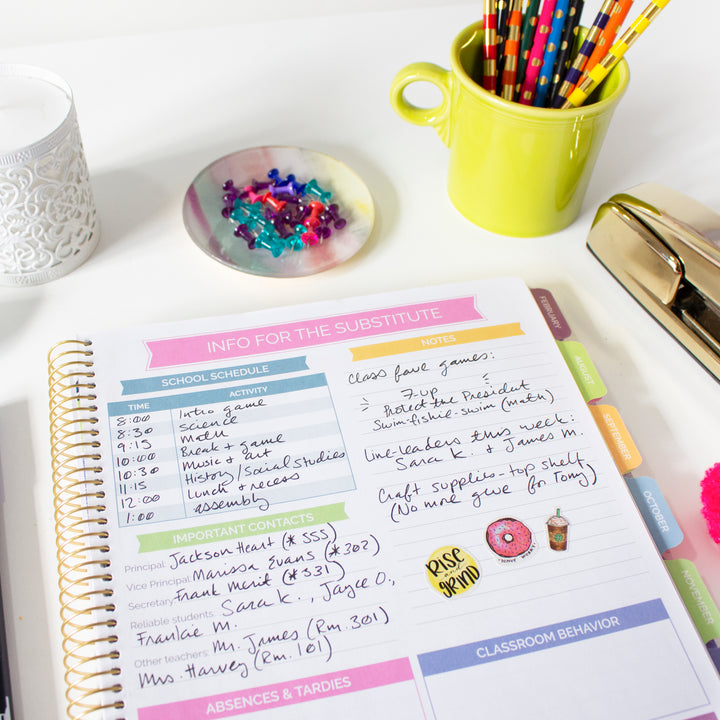 INFO FOR THE SUBSTITUTE
SCHOOL SCHEDULE
TIME ACTIVITY
8:00 Intro game
8:30 science
9:15 math
10:00 Break + game
10:30 music + art
11:15 History/Social studies
12:00 Lunch + recess
1:00 assembly
IMPORTANT CONTACTS
Principal: Jackson Heart (*555)
Vice Principal: Marissa Evans (*302)
Secretary: Frank Merit (*531)
Reliable students: Sara K., Jayce O.,
Frankie M.
Other teachers: Mr. James (Rm. 301)
Mrs. Harvey (Rm. 101)
ABSENCES & TARDIES
NOTES
Class fave games:
7-up
Protect the President
Swim-fishie-swim (math)
Line-leaders this week:
Sara K. + James M.
Craft supplies - top shelf
(No more glue for Tony)
RISE
and
GRIND
CLASSROOM BEHAVIOR
FEBRUARY
AUGUST
SEPTEMBER
OCTOBER
NOVEMBER